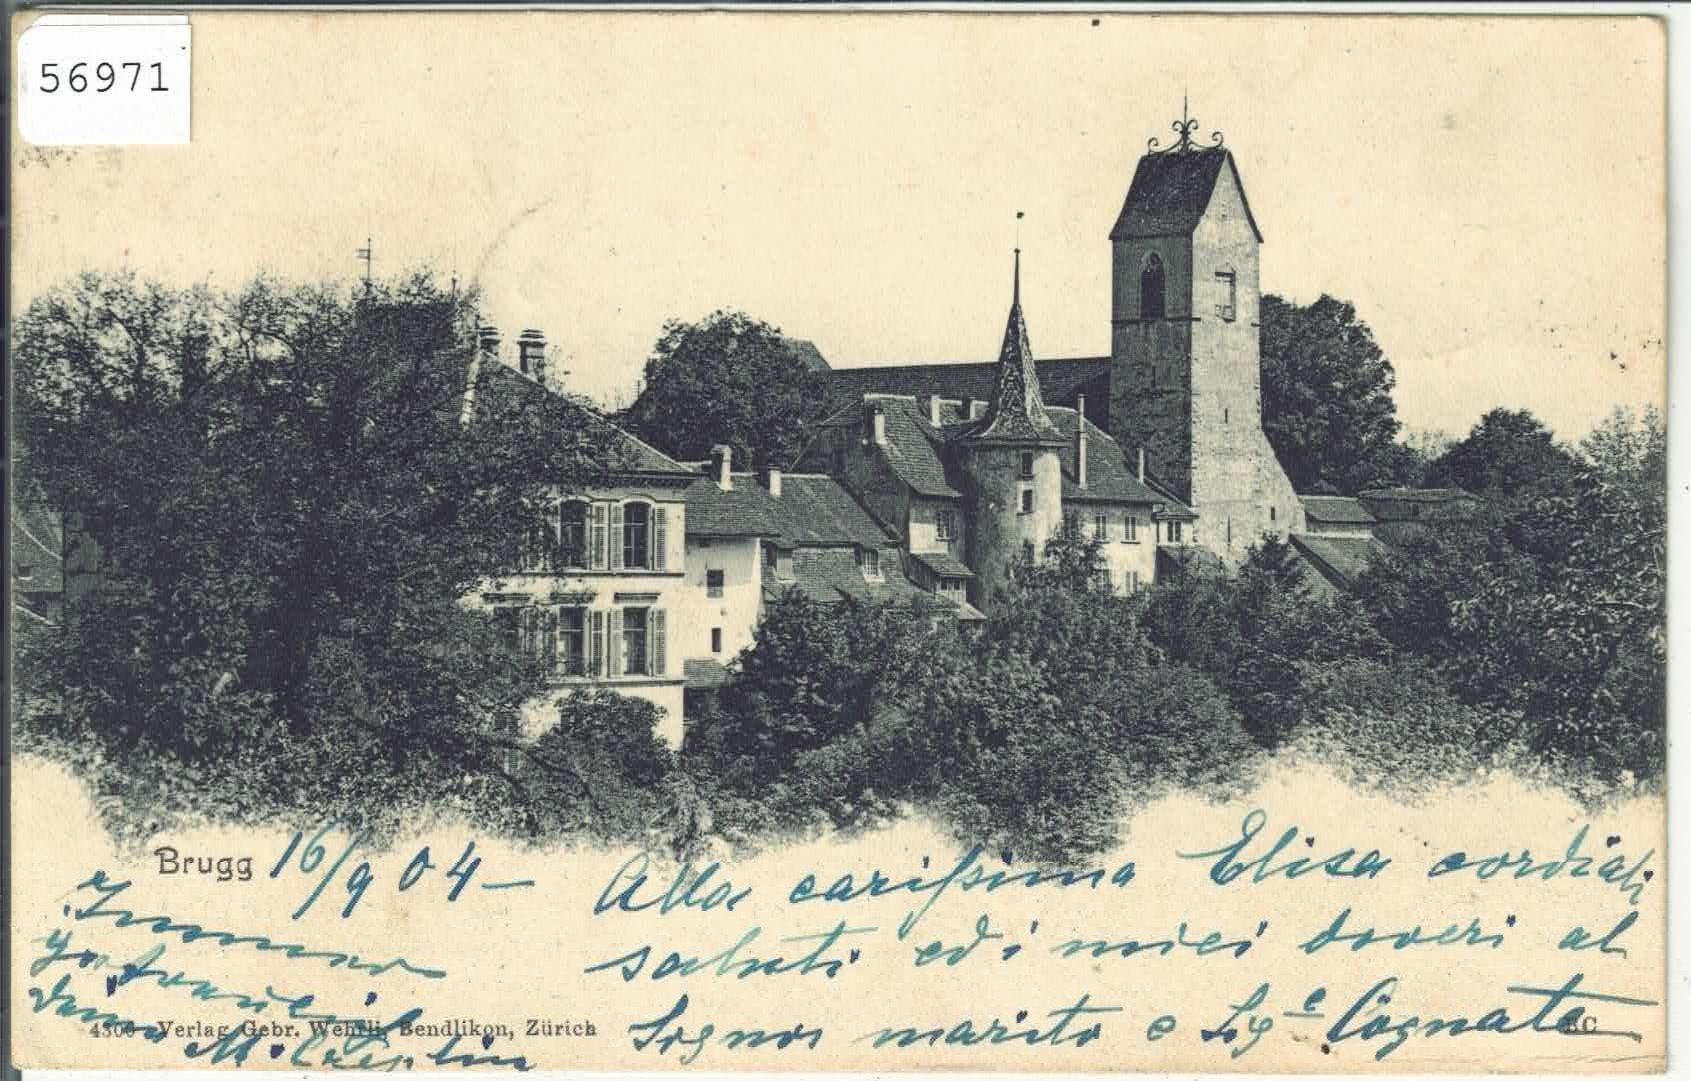 56971
Brugg 16/9 04 –
Alla carissima Elisa cordiali
saluti ed i miei doveri al
Signor marito e Sigᵉ Cognate
4300 Verlag Gebr. Wehrli, Bendlikon, Zürich